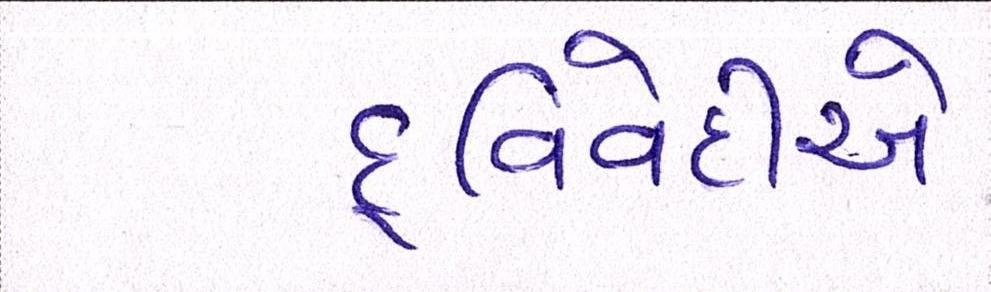 દ્‌વિવેદીએ